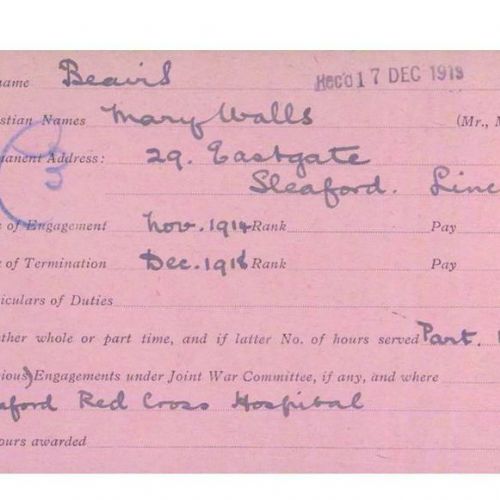 name Beavis Rec'd 17 DEC 1919
stian Names Mary Walls (Mr., M
manent Address: 29. Eastgate
3 Sleaford. Linc
e of Engagement Nov. 1914 Rank Pay
e of Termination Dec. 1918 Rank Pay
ticulars of Duties
ether whole or part time, and if latter No. of hours served Part.
ious) Engagements under Joint War Committee, if any, and where
eaford Red Cross Hospital
ours awarded